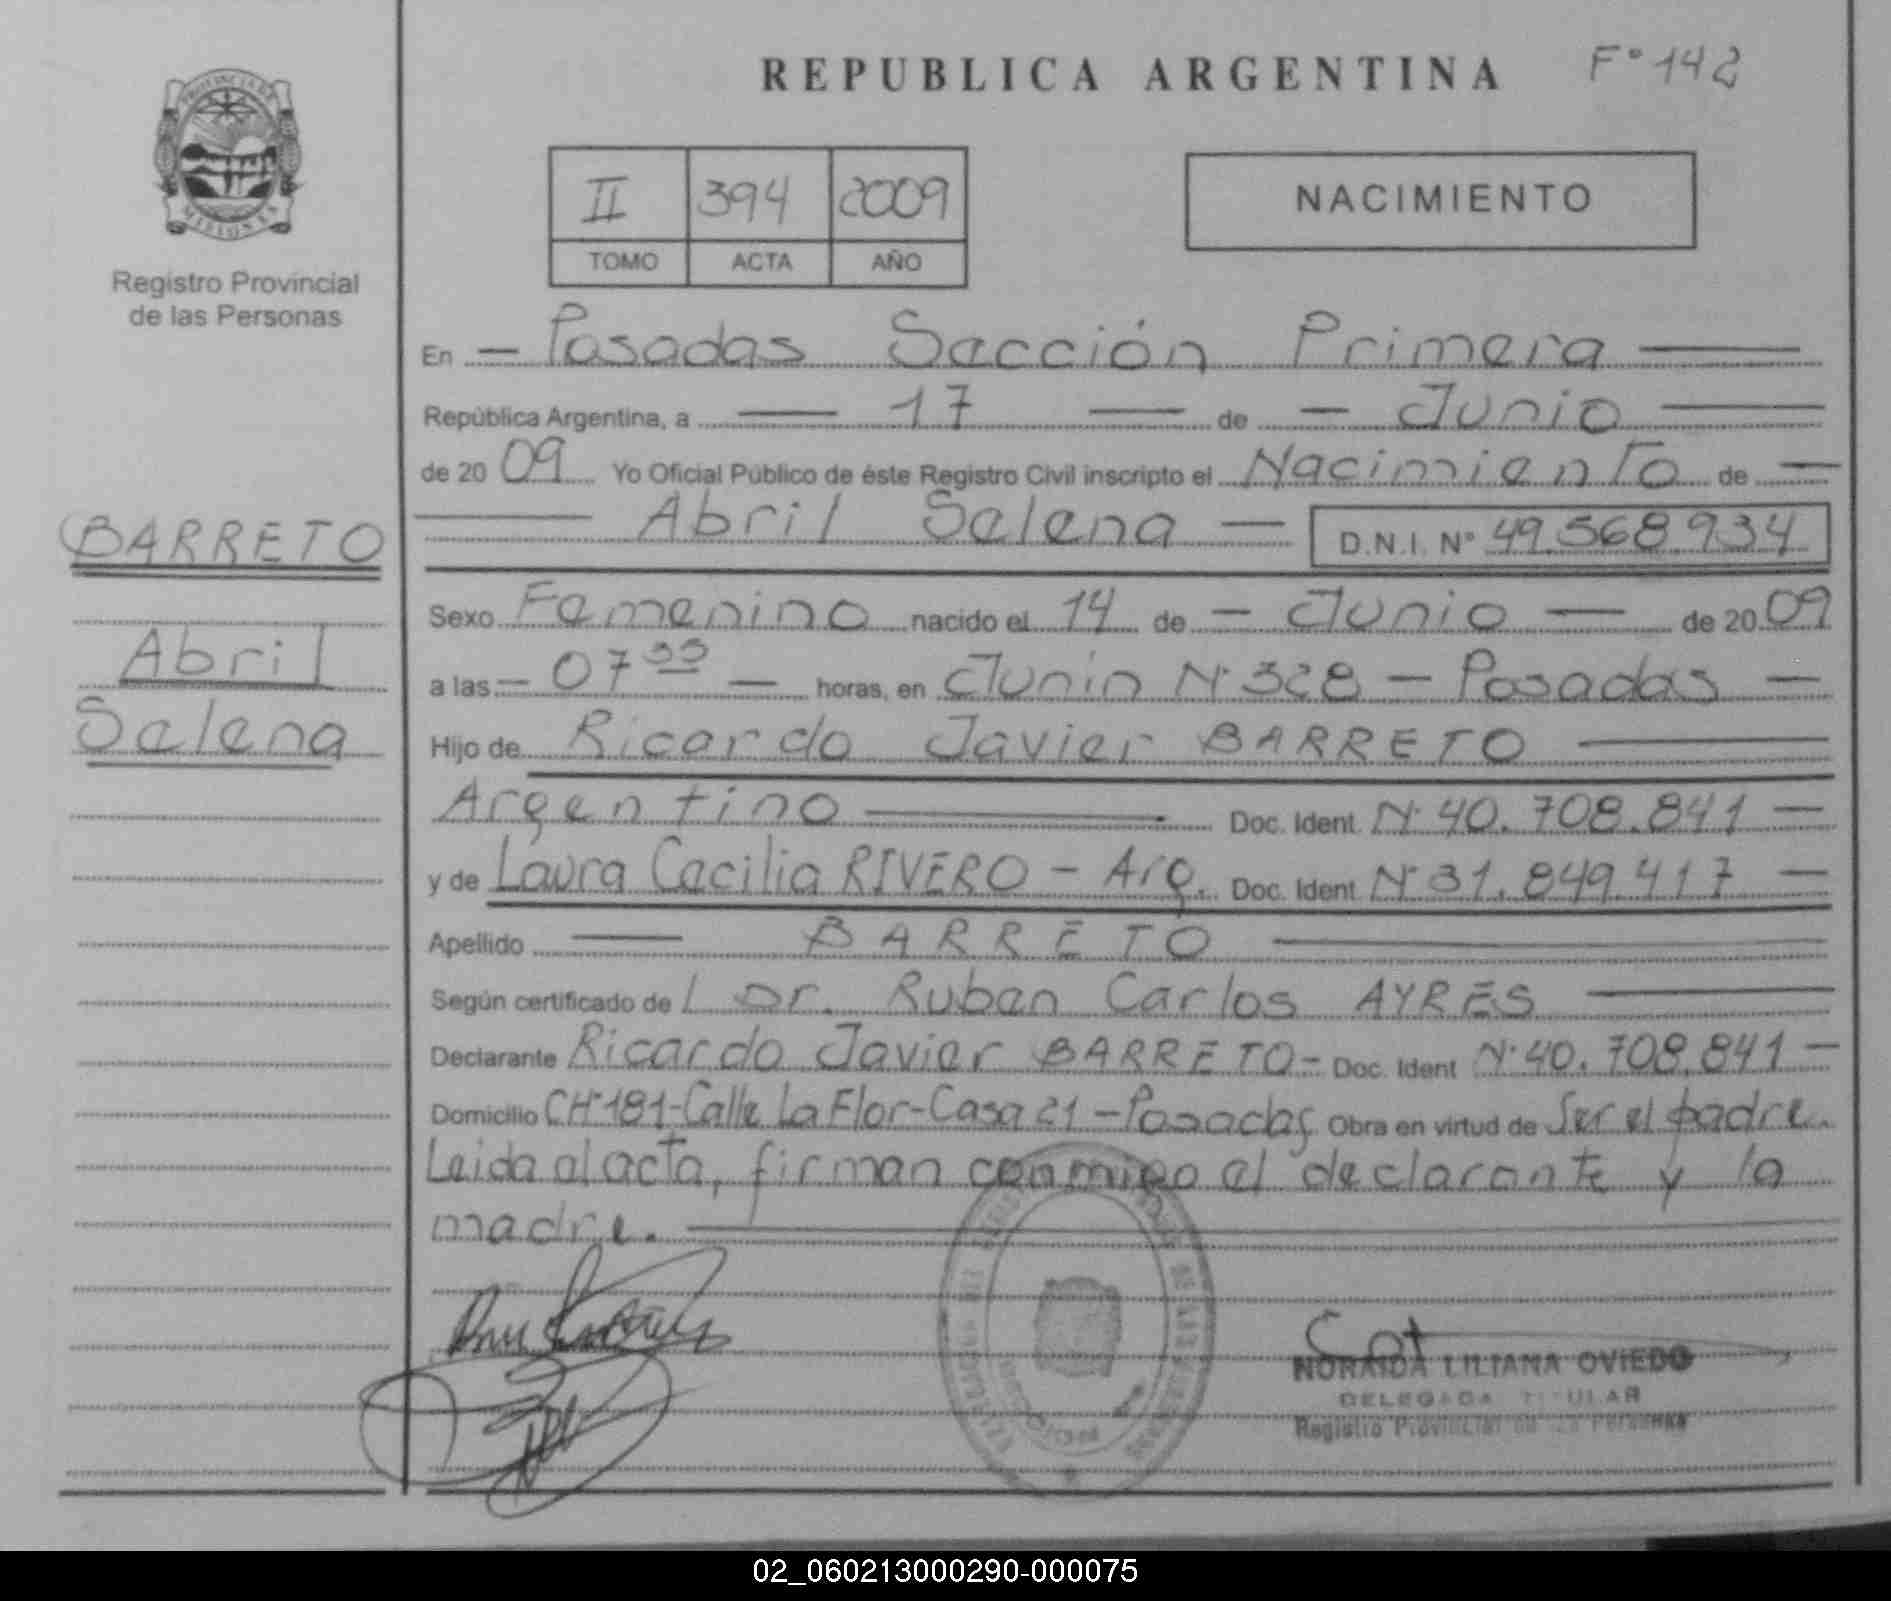 REPUBLICA ARGENTINA F° 142
PROVINCIA DE
MISIONES
Registro Provincial
de las Personas
II 394 2009
TOMO ACTA AÑO
NACIMIENTO
En - Posadas Sección Primera
República Argentina, a 17 de - Junio
de 20 09 Yo Oficial Público de éste Registro Civil inscripto el Nacimiento de -
Abril Selena - D.N.I. N° 49.568.934
BARRETO
Abril
Selena
Sexo Femenino nacido el 14 de - Junio - de 20 09
a las - 07 35 - horas, en Junin N° 328 - Posadas -
Hijo de Ricardo Javier BARRETO
Argentino Doc. Ident N° 40.708.841 -
y de Laura Cecilia RIVERO - Arg. Doc. Ident N° 31.849.417 -
Apellido BARRETO
Según certificado de l Dr. Ruben Carlos AYRES
Declarante Ricardo Javier BARRETO - Doc. Ident N° 40.708.841 -
Domicilio CH°181-Calle La Flor-Casa 21 - Posadas Obra en virtud de Ser el padre.
Leida el acta, firman conmigo el declarante y la
madre.
NORAIDA LILIANA OVIEDO
DELEGADA TITULAR
Registro Provincial de las Personas
02_060213000290-000075